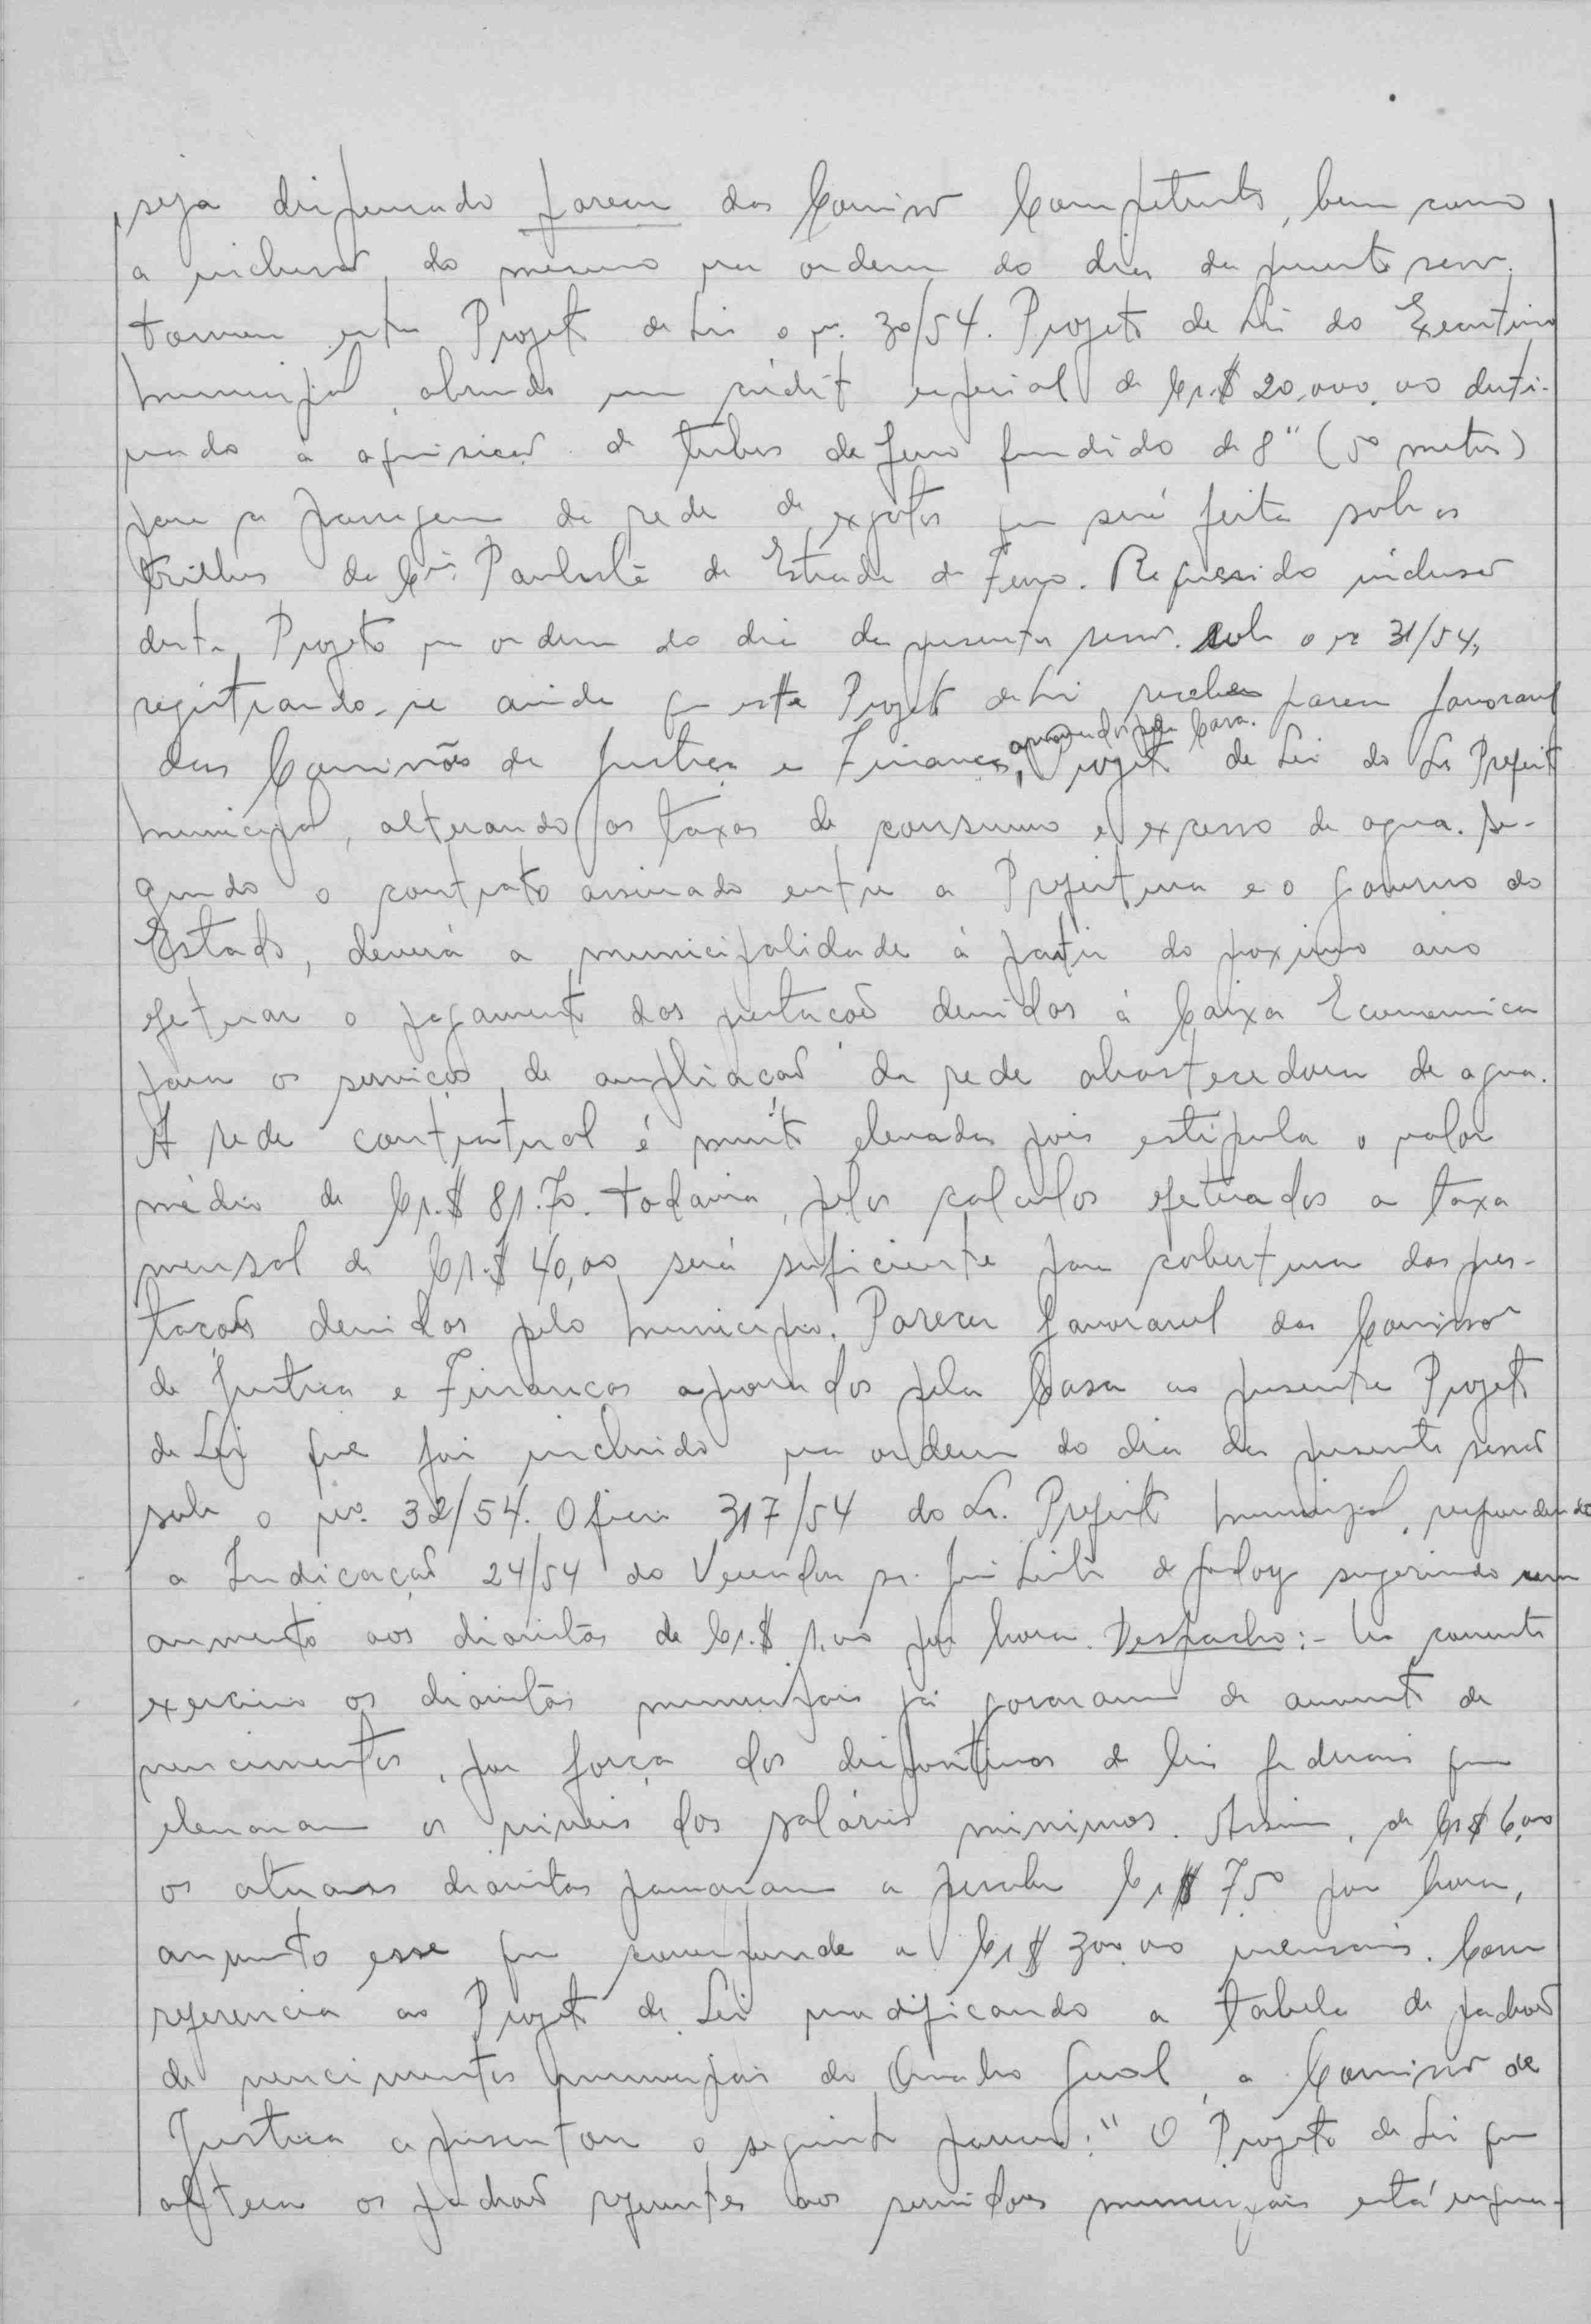 seja dispensado parecer das Comissões Competentes, bem como
a inclusão do mesmo na ordem do dia da presente sessão.
tomou este Projeto de Lei o nº. 30/54. Projeto de Lei do Executivo
Municipal, abrindo um crédito especial de Cr.$ 20.000,00 desti-
nado à aquisição de tubos de ferro fundido de 8" (50 metros)
para a passagem da rede de exgotos que será feita sob os
trilhos da Cia. Paulista de Estrada de Ferro. Requerido inclusão
deste Projeto na ordem do dia da presente sessão. sob o nº 31/54,
registrando-se ainda que este Projeto de Lei recebeu parecer favoravel
das Comissões de Justiça e Finanças, aprovados pela Casa. Projeto de Lei do Sr. Prefeito
Municipal, alterando as taxas de consumo e excesso de agua. Se-
gundo o contrato assinado entre a Prefeitura e o Governo do
Estado, deverá a municipalidade à partir do proximo ano
efetuar o pagamento das prestações devidas à Caixa Economica
para os serviços de ampliação da rede abastecedora de agua.
A rede contratual é muito elevada pois estipula o valor
médio de Cr.$ 81.70. todavia, pelos calculos efetuados a taxa
mensal de Cr.$ 40,00 será suficiente para cobertura das pres-
tações devidas pelo Municipio. Parecer favoravel das Comissões
de Justiça e Finanças aprovados pela Casa ao presente Projeto
de Lei que foi incluido na ordem do dia da presente sessão
sob o nº. 32/54. Oficio 317/54 do Sr. Prefeito Municipal, respondendo
a Indicação 24/54 do Vereador sr. José Leite de Godoy sugerindo um
aumento aos diaristas de Cr.$ 1,00 por hora. Despacho:- No corrente
exercicio os diaristas municipais já gozaram de aumento de
vencimentos, por força dos dispositivos de leis federais que
elevaram os niveis dos salários minimos. Assim, de Cr$ 6,00
os atuais diaristas passaram a perceber Cr$ 7,50 por hora,
aumento esse que corresponde a Cr$ 300,00 mensais. Com
referencia ao Projeto de Lei modificando a tabela de padrões
de vencimentos municipais do Quadro Geral, a Comissão de
Justiça apresentou o seguinte parecer: "O Projeto de Lei que
altera os padrões referentes aos servidores municipais está